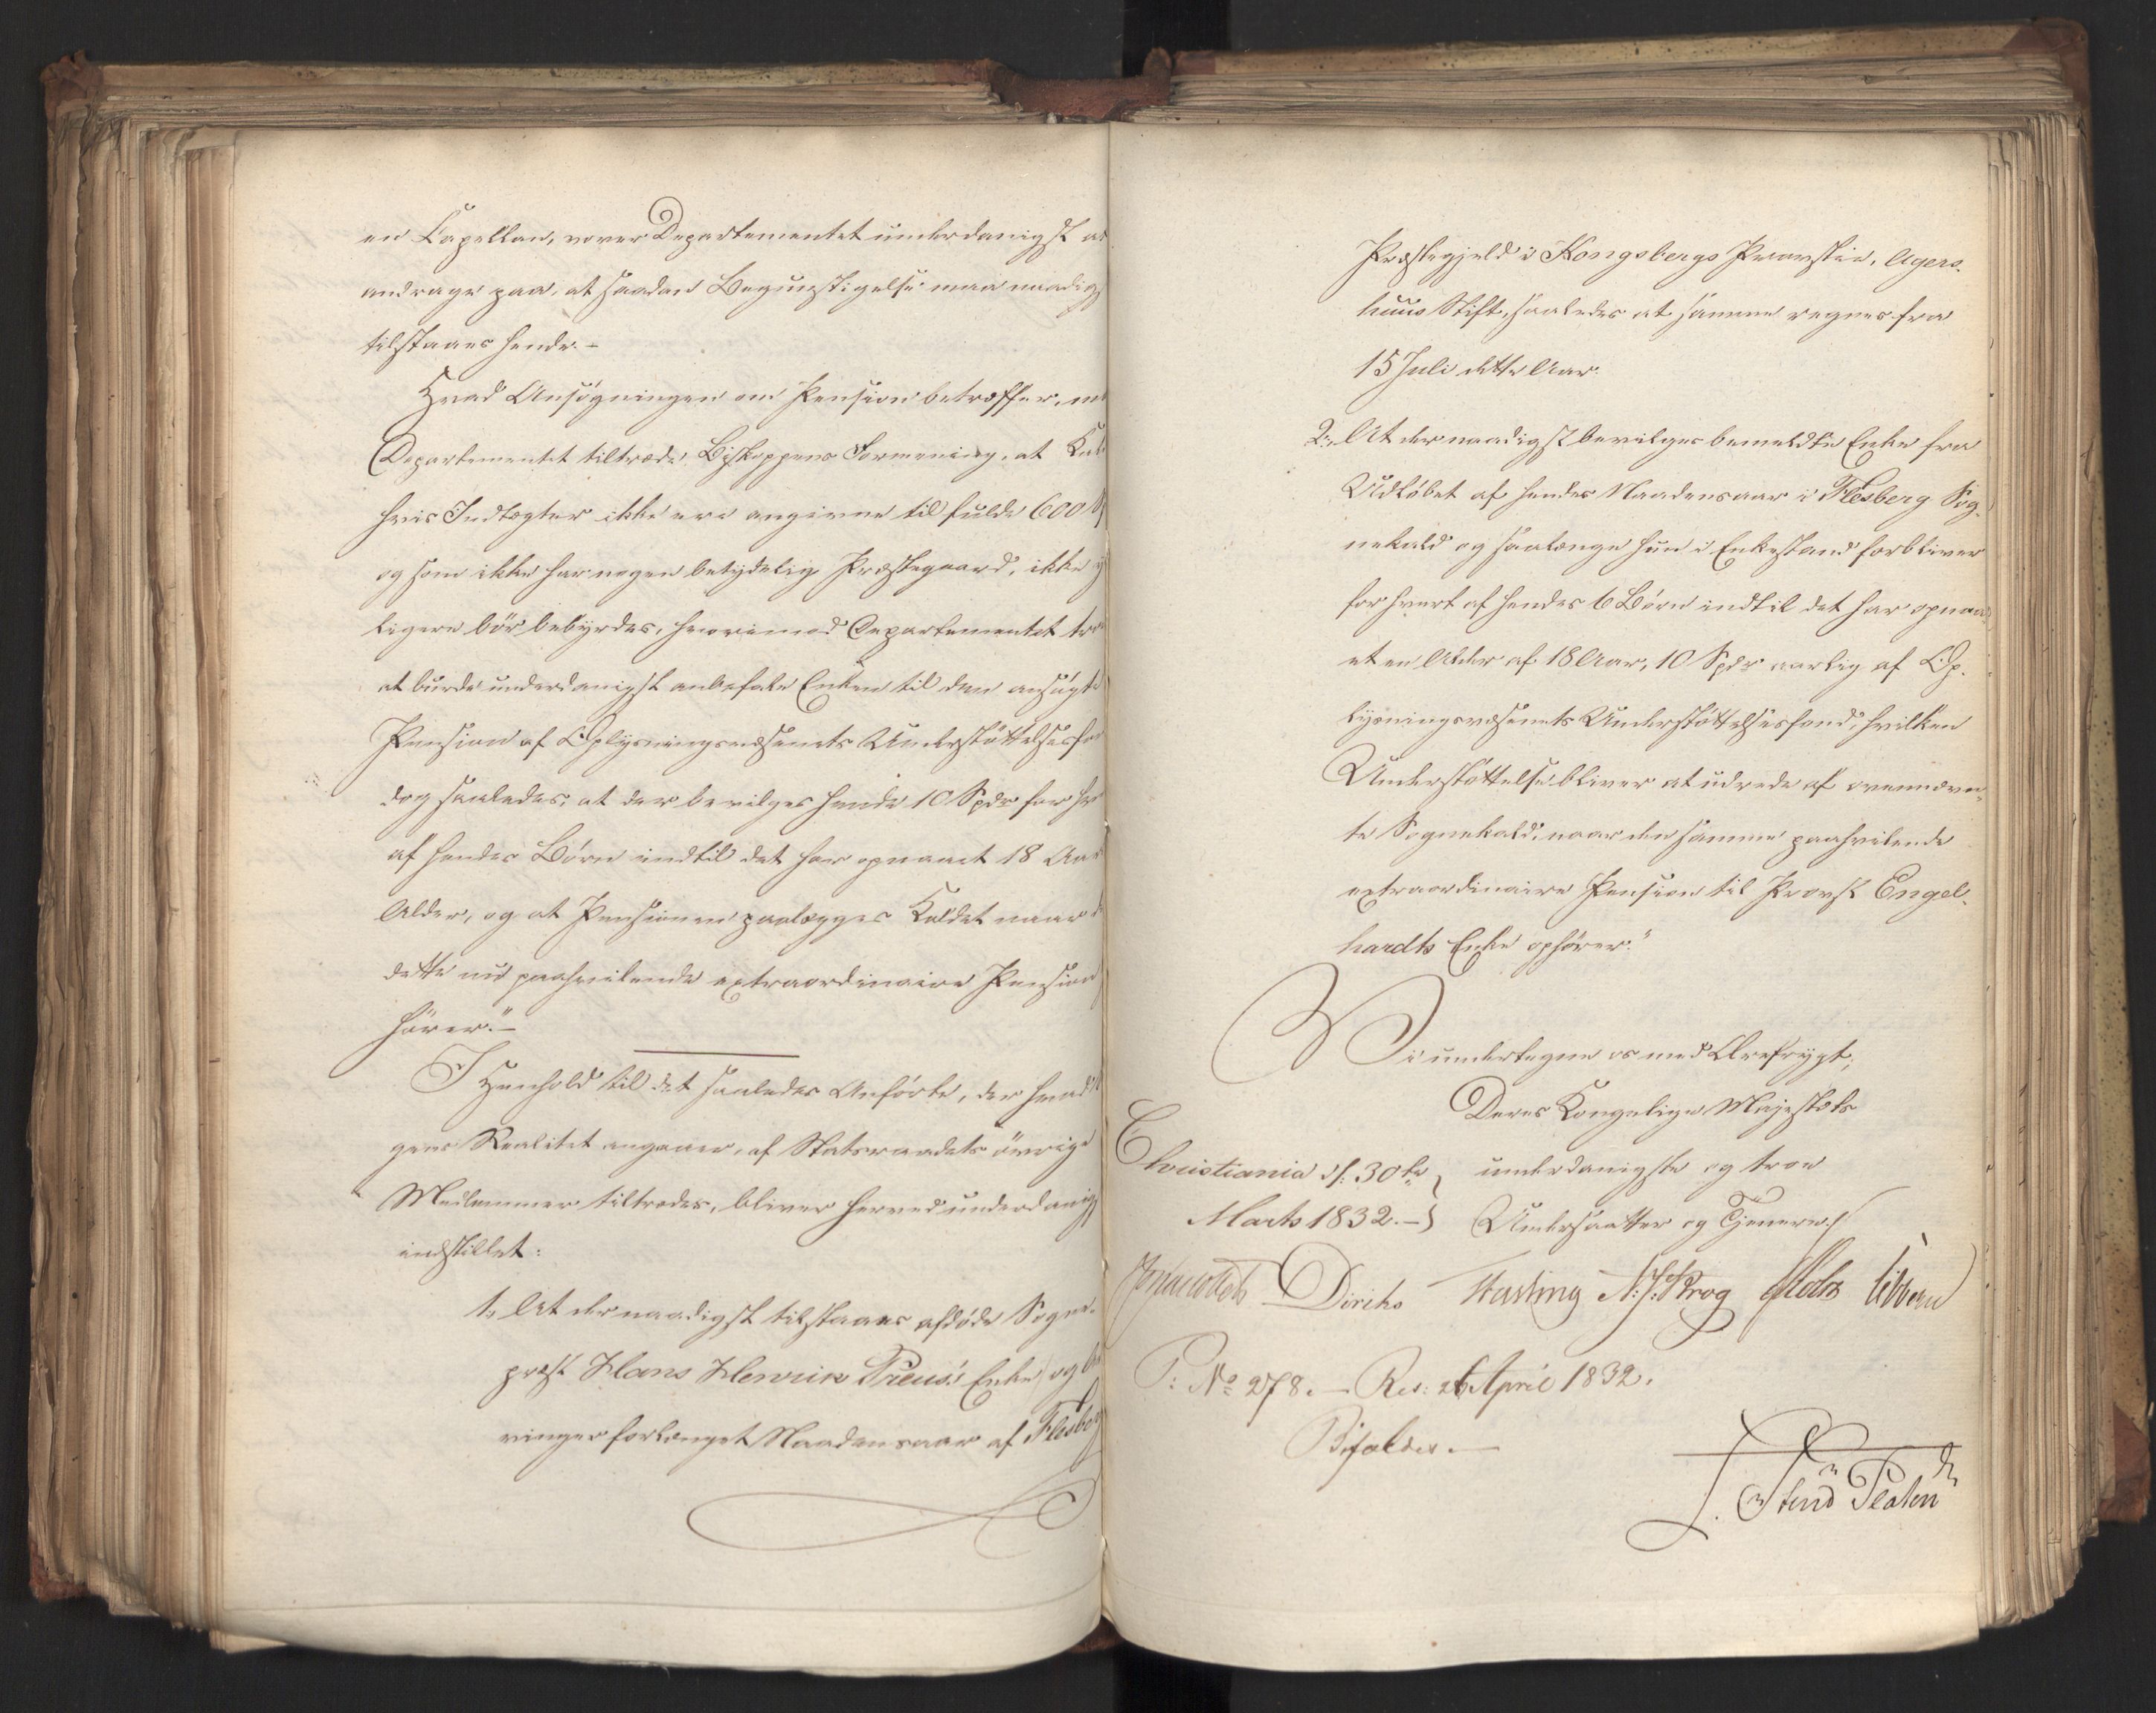 en Capellan, vover Departementet underdanigst at
andrage paa, at saadan Begunstigelse maa naadigst
tilstaaes hende. –
Hvad Ansøgningen om Pension betræffer, maa
Departementet tiltræde Biskoppens Formening, at Kald
hvis Indtægter ikke ere angivne til fulde 600
og som ikke har nogen betydelig Præstegaard, ikke
ligere bør bebyrdes, hvorimod Departementet troer
at burde underdanigst anbefale Enken til den ansøgte
Pension af Oplysningsvæsenets Understøttelsesfond
dog saaledes, at der bevilges hende 10 Spdr for hvert
af hendes Børn indtil det har opnaaet 18 Aars
Alder, og at Pensionen paalægges Kaldet naar
dette nu paahvilende extraordinaire Pension
hører." –
I Henhold til det saaledes Anførte, der hvad
gens Realitet angaaer, af Statsraadets øvrige
Medlemmer tiltrædes, bliver herved underdanigst
indstillet:
1, At der naadigst tilstaaes afdøde Sogne-
præst Hans Henrik Preus's Enke og
vinger forlænget Naadensaar af Flesberg
Præstegjeld i Kongsbergs Provstie, Agers-
huus Stift, saaledes at samme regnes fra
15 Juli dette Aar.
2, At der naadigst bevilges bemeldte Enke fra
Udløbet af hendes Naadensaar i Flesberg Sog-
nekald og saalænge hun i Enkestand forbliver
for hvert af hendes 6 Børn indtil det har opnaa-
et en Alder af 18 Aar, 10 Spdr aarlig af Op-
lysningsvæsenets Understøttelsesfond, hvilken
Understøttelse bliver at udrede af ovennævn-
te Sognekald, naar den samme paahvilende
extraordinaire Pension til Provst Engel-
hardts Enke ophører."
Vi undertegne os med Ærefrygt,
Deres Kongelige Majestæts
Christiania d: 30te underdanigste og troe
Marts 1832. – Undersaatter og Tjenere.
J Collett Diriks Fasting N. J. Krog J Holst Vibe
P: No 278. – Res: 26 April 1832.
Bifaldes. –
Platen